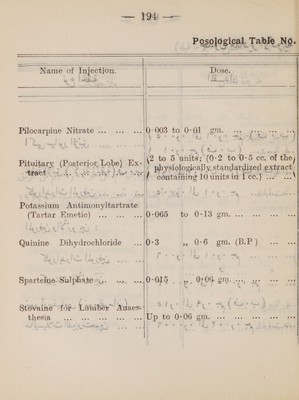 — 194 —
Posological Table No.
Name of Injection. Dose.
Pilocarpine Nitrate ... ... ... 0·003 to 0·01 gm. ... ... ... ...
Pituitary (Posterior Lobe) Ex-
tract
2 to 5 units; (0·2 to 0·5 cc. of the
physiologically standardized extract
containing 10 units in 1 cc.) ... ...
Potassium Antimonyltartrate
(Tartar Emetic) ... ... ... 0·065 to 0·13 gm. ... ... ... ...
Quinine Dihydrochloride ... 0·3 „ 0·6 gm. (B.P) ... ... ...
Sparteine Sulphate ... ... ... 0·015 „ 0·06 gm. ... ... ... ...
Stovaine for Lumber Anaes-
thesia ... ... ... ... ... Up to 0·06 gm. ... ... ... ... ...